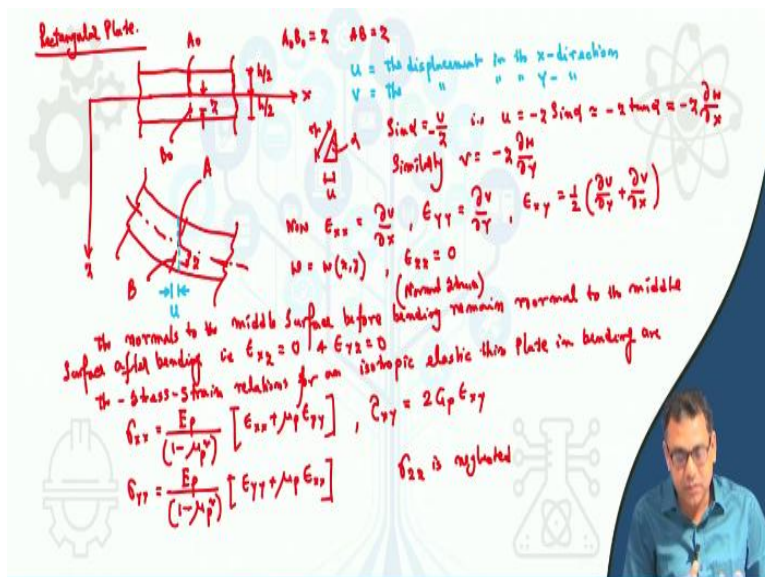 Rectangular Plate.
A₀ A₀B₀ = z AB = z
h/2
h/2
z
x
B₀
u = the displacement in the x-direction
v = the " " " y- "
Sinα = -u/z i.e. u = -z Sinα ≈ -z tanα = -z ∂w/∂x
Similarly v = -z ∂w/∂y
α
u
A
z
B
u
z
Now ϵxx = ∂u/∂x , ϵyy = ∂v/∂y , ϵxy = 1/2 (∂u/∂y + ∂v/∂x)
w = w(x,y) , ϵzz = 0
(Normal Strain)
The normals to the middle Surface before bending remain normal to the middle
Surface after bending ie ϵxz = 0 & ϵyz = 0
The -Stress-Strain relations for an isotopic elastic thin Plate in bending are
σxx = Ep/(1-μp²) [ϵxx + μp ϵyy] , τxy = 2Gp ϵxy
σyy = Ep/(1-μp²) [ϵyy + μp ϵxx] σzz is neglected